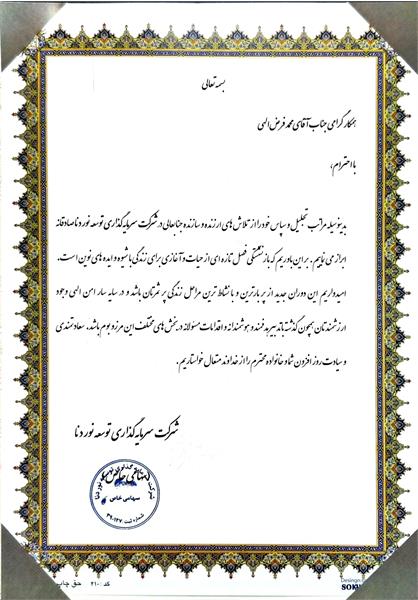 بسمه تعالی
همکار گرامی جناب آقای محمد فرض الهی
با احترام،
بدینوسیله مراتب تجلیل و سپاس خود را از تلاش های ارزنده و سازنده جنابعالی در شرکت سرمایه گذاری توسعه نور دنا صادقانه
ابراز می نماییم. بر این باوریم که بازنشستگی فصل تازه ای از حیات و آغازی برای زندگی با شیوه و ایده های نوین است.
امیدواریم این دوران جدید از پر بارترین و با نشاط ترین مراحل زندگی پر ثمرتان باشد و در سایه سار امن الهی وجود
ارزشمندتان همچون گذشته هوشمندانه و اقدامات مسئولانه در بخش های مختلف این مرز و بوم باشد. سعادتمندی
و سیادت روز افزون شما و خانواده محترم را از خداوند متعال خواستاریم.
شرکت سرمایه گذاری توسعه نور دنا
سهامی خاص
شماره ثبت: ۳۹۰۱۴۷
کد: ۲۱۰ حق چاپ
Design
SOKU